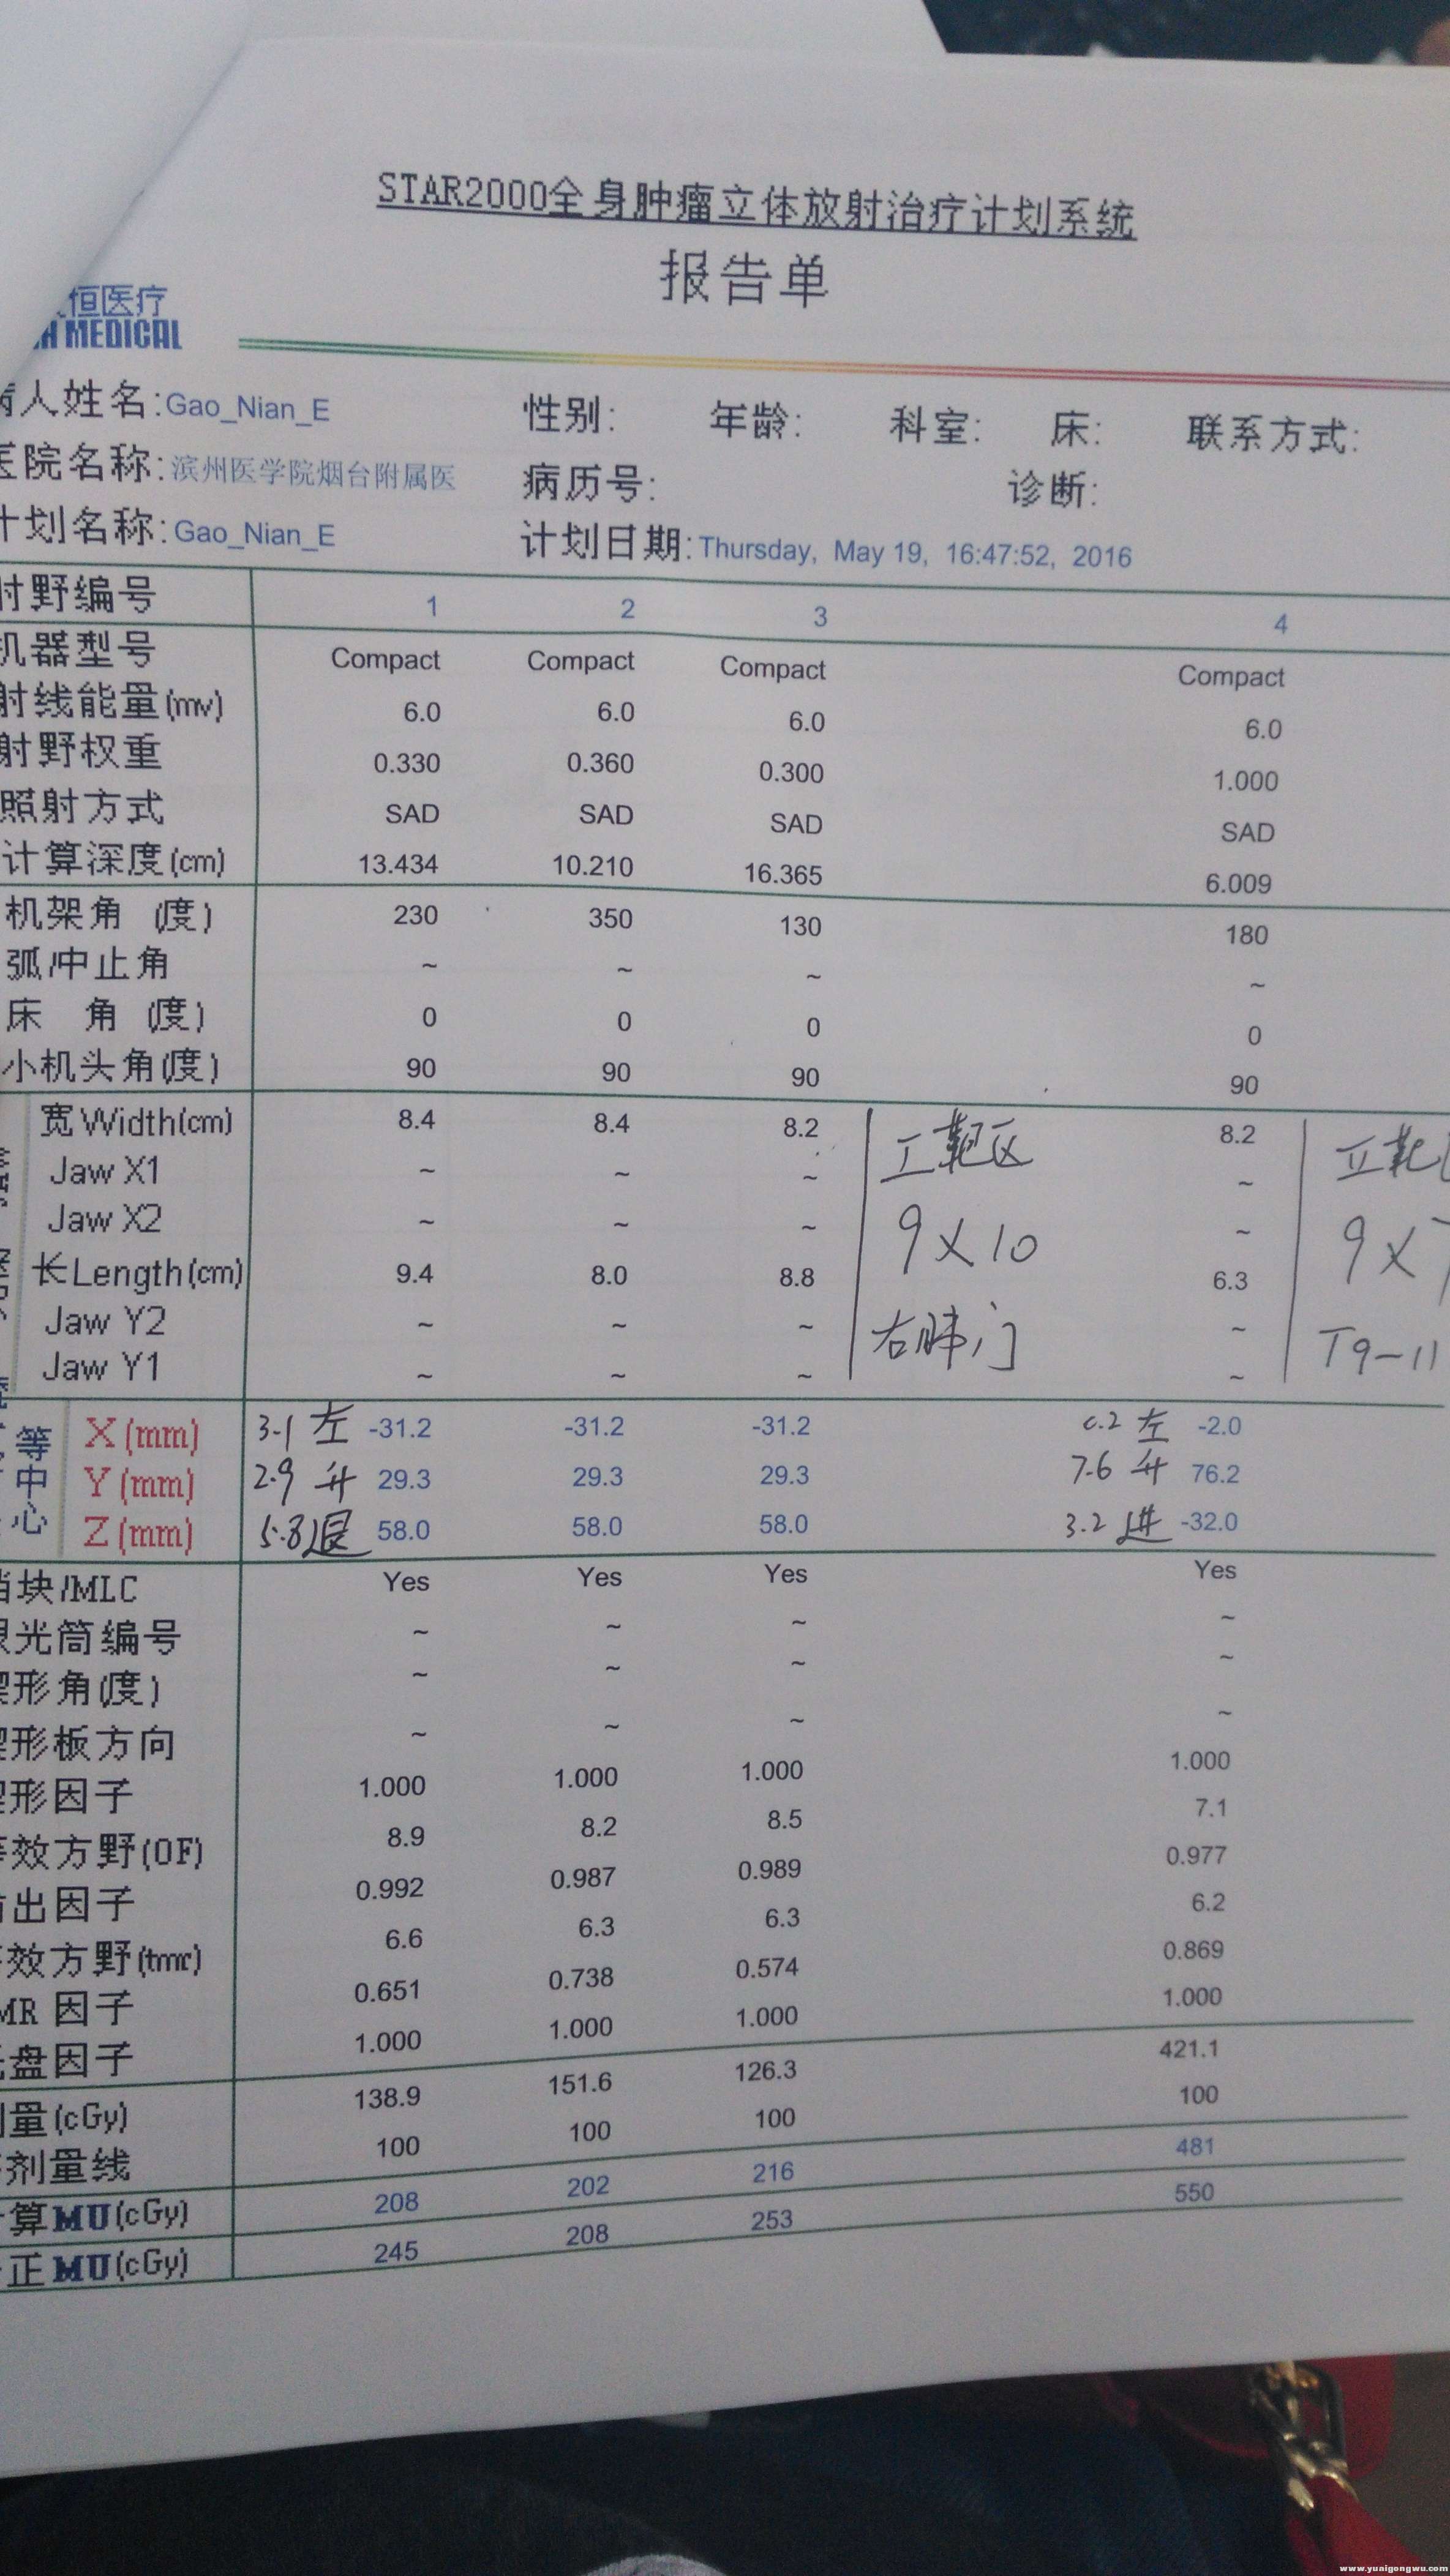 STAR2000全身肿瘤立体放射治疗计划系统
报告单
恒医疗
MEDICAL
人姓名:Gao_Nian_E 性别: 年龄: 科室: 床: 联系方式:
医院名称:滨州医学院烟台附属医 病历号: 诊断:
计划名称:Gao_Nian_E 计划日期:Thursday, May 19, 16:47:52, 2016
射野编号 1 2 3 4
机器型号 Compact Compact Compact Compact
射线能量(mv) 6.0 6.0 6.0 6.0
射野权重 0.330 0.360 0.300 1.000
照射方式 SAD SAD SAD SAD
计算深度(cm) 13.434 10.210 16.365 6.009
机架角 (度) 230 350 130 180
弧/中止角 ~ ~ ~ ~
床 角 (度) 0 0 0 0
小机头角(度) 90 90 90 90
宽Width(cm) 8.4 8.4 8.2 I靶区 8.2 II靶
Jaw X1 ~ ~ ~ ~
Jaw X2 ~ ~ ~ 9×10 ~ 9×7
长Length(cm) 9.4 8.0 8.8 6.3
Jaw Y2 ~ ~ ~ 右肺门 ~ T9-11
Jaw Y1 ~ ~ ~ ~
等中心
X(mm) 3.1 左 -31.2 -31.2 -31.2 0.2 左 -2.0
Y(mm) 2.9 升 29.3 29.3 29.3 7.6 升 76.2
Z(mm) 5.8退 58.0 58.0 58.0 3.2 进 -32.0
挡块/MLC Yes Yes Yes Yes
限光筒编号 ~ ~ ~ ~
楔形角(度) ~ ~ ~ ~
楔形板方向 ~ ~ ~ ~
楔形因子 1.000 1.000 1.000 1.000
等效方野(OF) 8.9 8.2 8.5 7.1
出因子 0.992 0.987 0.989 0.977
效方野(tmr) 6.6 6.3 6.3 6.2
MR 因子 0.651 0.738 0.574 0.869
盘因子 1.000 1.000 1.000 1.000
量(cGy) 138.9 151.6 126.3 421.1
剂量线 100 100 100 100
算MU(cGy) 208 202 216 481
正MU(cGy) 245 208 253 550
www.yuaigongwu.com